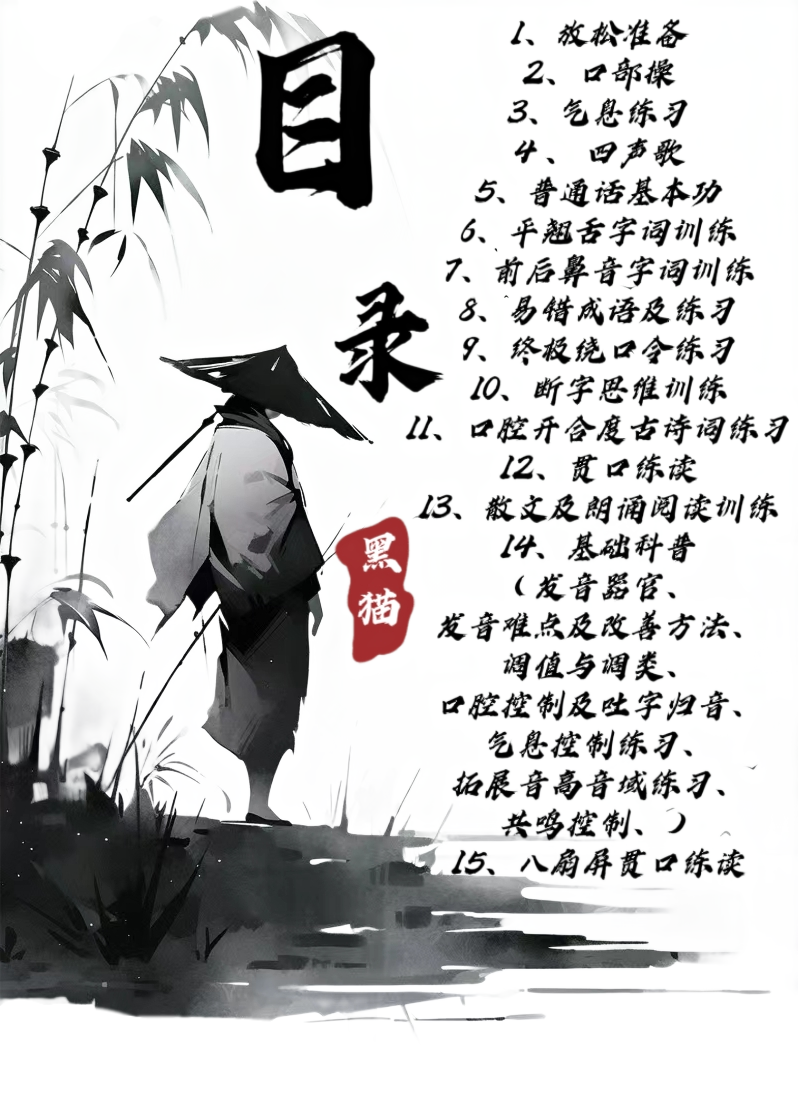 目录
1、放松准备
2、口部操
3、气息练习
4、四声歌
5、普通话基本功
6、平翘舌字词训练
7、前后鼻音字词训练
8、易错成语及练习
9、终极绕口令练习
10、断字思维训练
11、口腔开合度古诗词练习
12、贯口练读
13、散文及朗诵阅读训练
14、基础科普
（发音器官、
发音难点及改善方法、
调值与调类、
口腔控制及吐字归音、
气息控制练习、
拓展音高音域练习、
共鸣控制、）
15、八扇屏贯口练读
黑猫